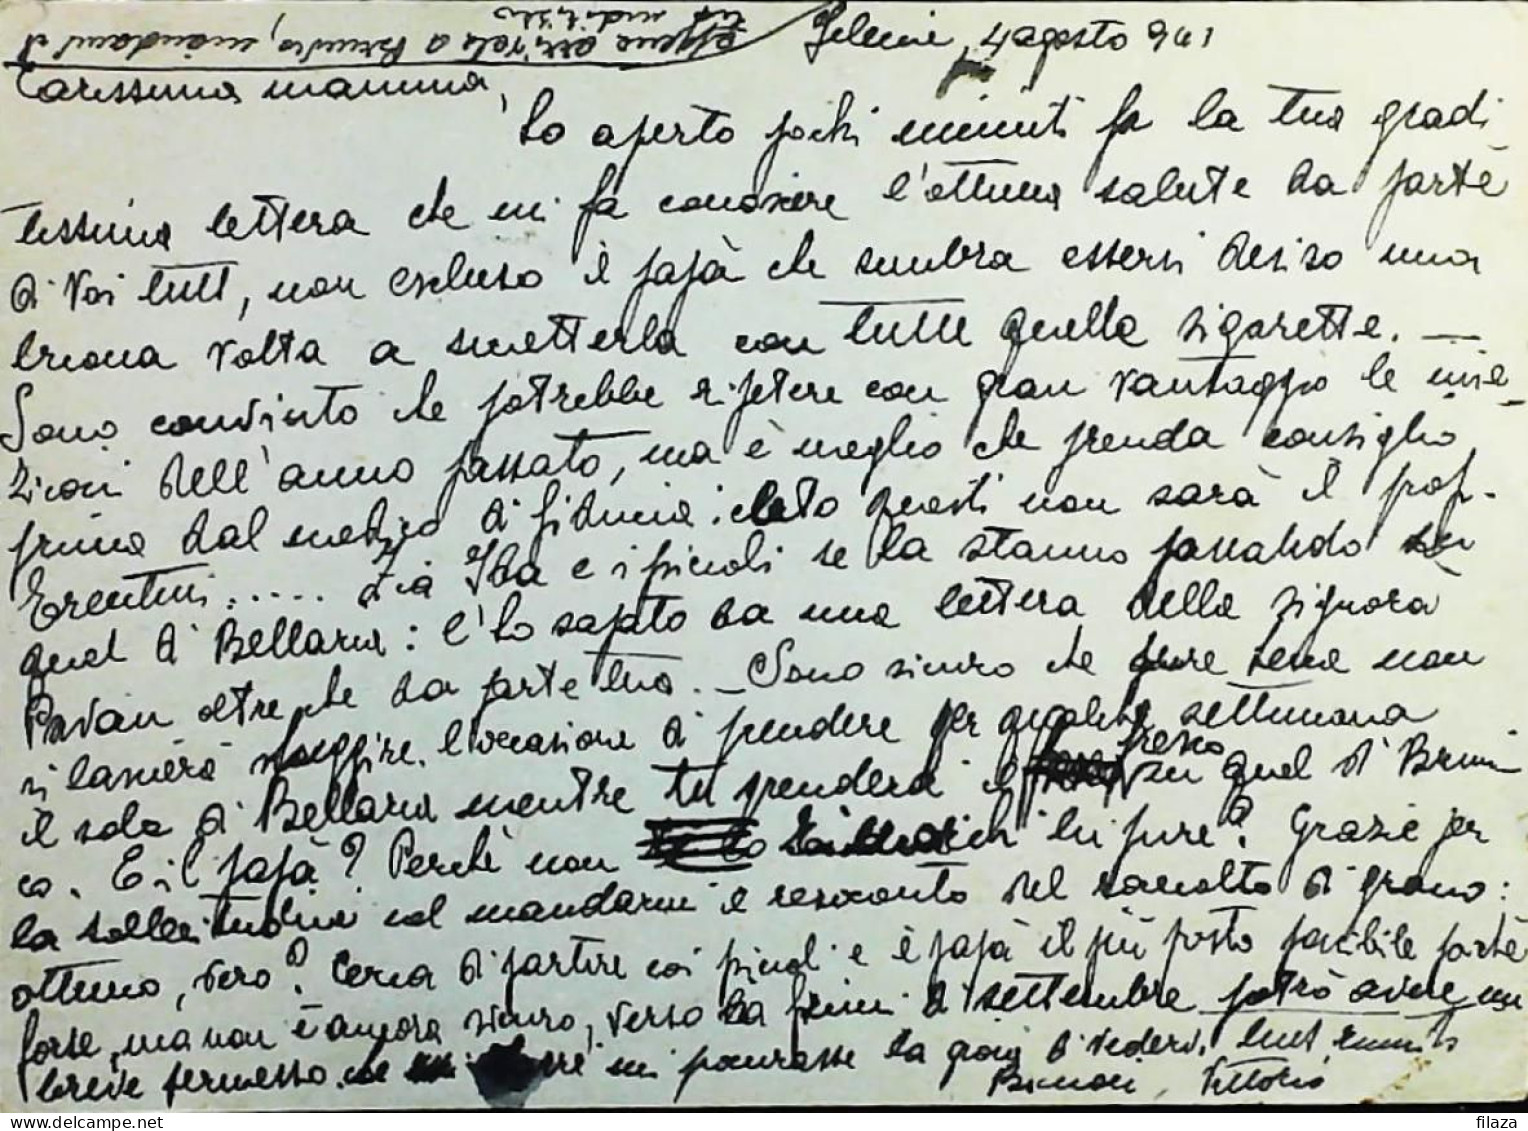 appena arrivata a Brunico, mandami il
tuo indirizzo
4 agosto 941
Carissima mamma,
ho aperto pochi minuti fa la tua gradi
tissima lettera che mi fa conoscere l'ottima salute da parte
di voi tutti, non escluso il papà che sembra essersi deciso una
buona volta a smetterla con tutte quelle sigarette. —
Sono convinto che potrebbe ripetere con gran vantaggio le inie-
zioni dell'anno passato, ma è meglio che prenda consiglio
prima dal medico di fiducia: questi non sarà il prof.
..... Zia Ida e i piccoli se la stanno passando in
quel di Bellaria: l'ho saputo da una lettera della signora
Pavan oltre che da parte tua. — Sono sicuro che pure lene non
si lascierà sfuggire l'occasione di prendere per qualche settimana
il sole di Bellaria mentre tu prenderai il fresco in quel di Bruni
co. E il papà? Perchè non lui pure? Grazie per
la sollecitudine nel mandarmi il resoconto del raccolto di grano:
ottimo, vero? Cerca di partire coi piccoli e il papà il più presto possibile perchè
forse, ma non è ancora sicuro, verso la fine di settembre potrò avere un
breve permesso che mi procurasse la gioia di vedervi tutti riuniti
Bacioni, Vittorio
filaza